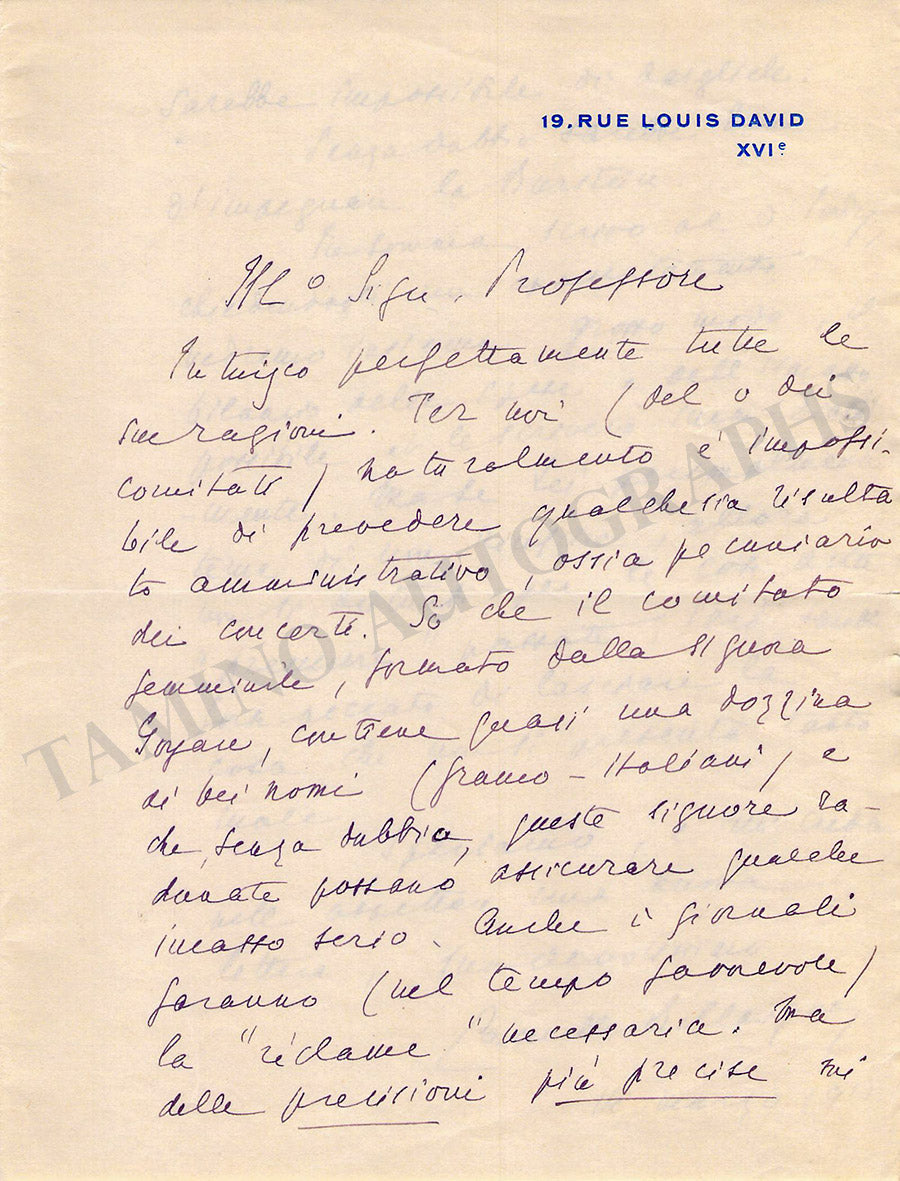 19, RUE LOUIS DAVID
XVIe
Ill.o Sign. Professore
Intuisco perfettamente tutte le
sue ragioni. Per noi (del o dei
comitati) naturalmente è impossi-
bile di prevedere qualchesia risulta
to amministrativo, ossia pecuniario
dei concerti. So che il comitato
femminile, formato dalla signora
contiene quasi una dozzina
di bei nomi (franco-italiani) e
che, senza dubbio, queste signore ra-
dunate possano assicurare qualche
incasso serio. Anche i giornali
faranno (nel tempo favorevole)
la "réclame" necessaria. Ma
delle precisioni più precise mi
TAMINO AUTOGRAPHS